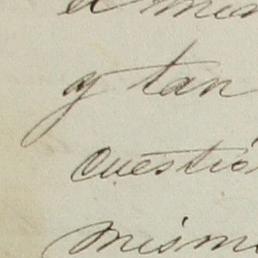 y tan
cuestió
mismo